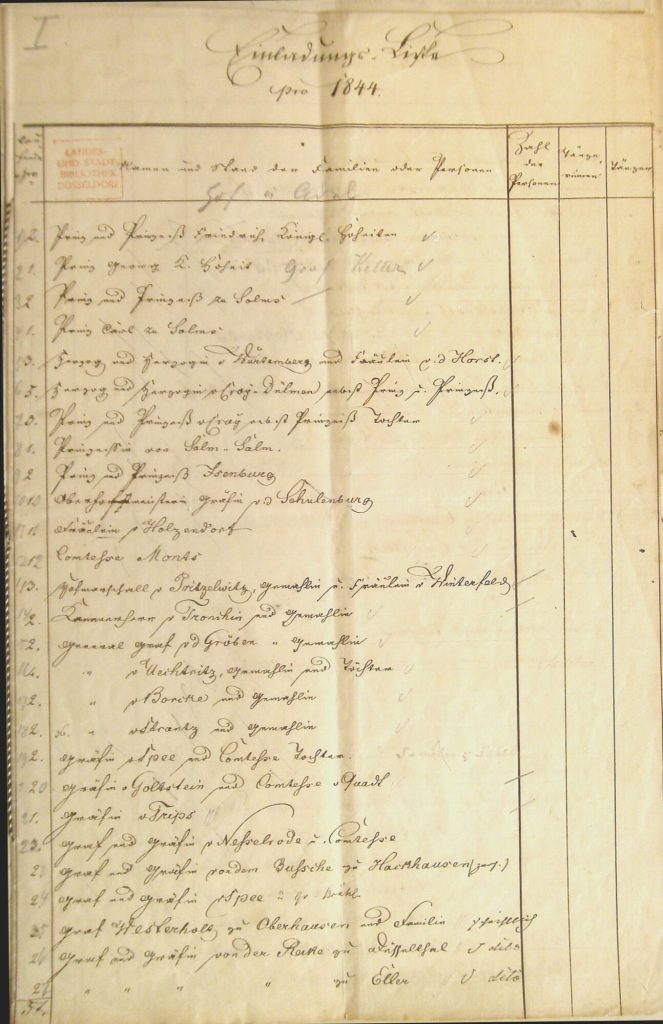 I
Einladungs-Liste
pro 1844.
LANDES-
UND STADT-
BIBLIOTHEK
DÜSSELDORF
Namen und Stand der Familien oder Personen
Zahl der Personen
Tänzerinnen
Tänzer
Hof u Adel
Prinz und Prinzeß Friedrich, Königl. Hoheiten
Prinz Georg K. Hoheit Graf Keller
Prinz und Prinzeß zu Solms
Prinz Carl zu Solms
Herzog und Herzogin v Würtemberg und Fräulein v. d Horst.
Herzog und Herzogin v Croy-Dülmen nebst Prinz u. Prinzeß.
Prinz und Prinzeß v Croÿ nebst Prinzeß Tochter
Prinzessin von Salm-Salm.
Prinz und Prinzeß Isenburg
Oberhofmeisterin Gräfin v d Schulenburg
Fräulein v Holzendorf
Comtesse Monts
Hofmarschall v Pritzelwitz, Gemahlin u. Fräulein v Winterfeld
Kammerherr v Tronchin und Gemahlin
General Graf v d Gröben " Gemahlin
" v Uechtritz, Gemahlin und Töchter
" v Borcke und Gemahlin
" v Strantz und Gemahlin
Gräfin v Spee und Comtesse Tochter.
20 Gräfin v Goltstein und Comtesse v Quadt
21. Gräfin v Trips
Graf und Gräfin v Nesselrode u. Comtesse
23 Graf und Gräfin von dem Bussche zu Hackhausen
24 Graf und Gräfin v Spee
25 Graf Westerholt zu Oberhausen und Familie schriftlich
26 Graf und Gräfin von der Recke zu Düsselthal dito
" " " " zu Eller dito